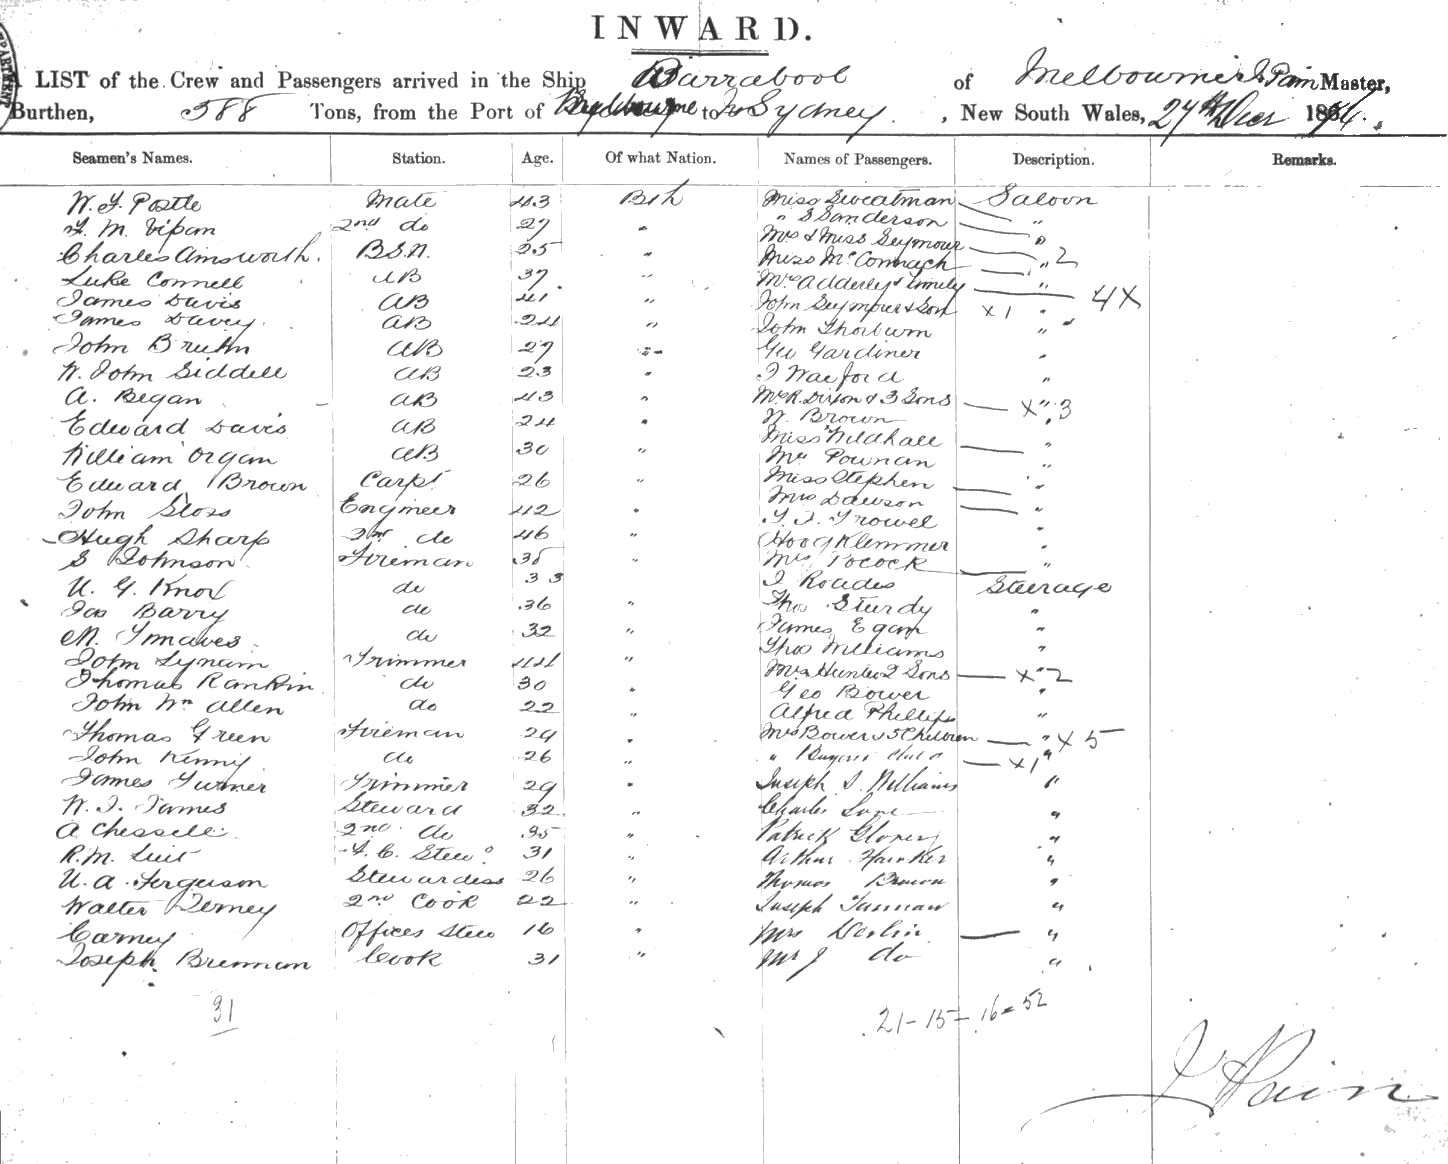 INWARD.
LIST of the Crew and Passengers arrived in the Ship Barrabool of Melbourne J Pain Master,
Burthen, 388 Tons, from the Port of Melbourne to Sydney, New South Wales, 27th Decr 1874.
Seamen's Names. Station. Age. Of what Nation. Names of Passengers. Description. Remarks.
W. F. Postle Mate 43 Bsh Miss Sweatman Saloon
F. M. Vipan 2nd do 27 " " S Sanderson "
Charles Ainsworth. B.S.N. 25 " Mrs & Miss Seymour "
Luke Connell AB 37 " Miss McCormack " 2
James Davis AB 41 " Mrs Adderley & family " 4X
James Davey AB 24 " John Seymour & Son x1 "
John Bruhn AB 27 " John Thorburn "
W. John Siddell AB 23 " Geo Gardiner "
A. Began AB 43 " J Warford "
Edward Davis AB 24 " Mr R. Dixon & 3 Sons x " 3
William Organ AB 30 " W. Brown "
Edward Brown Carpt 26 " Miss Wildhall "
John Sloss Engineer 42 " Mr Pownan
Hugh Sharp 2nd do 46 " Miss Stephen "
S Johnson Fireman 35 " Mrs Dawson "
U. G. Knox do 33 T. J. Trowel "
Jas Barry do 36 " Hoog Klemmer "
M. do 32 " Mrs Pocock "
John Lynam Trimmer 44 " J Roades Steerage
Thomas Rankin do 30 " Thos Sturdy "
John Wm Allen do 22 " James Egan "
Thomas Green Fireman 29 " Thos Williams "
John Kenny do 26 " Mrs Hunter 2 Sons x " 2
James Turner Trimmer 29 " Geo Bower "
W. J. James Steward 32 " Alfred Phillips "
A Chessell 2nd do 35 " Mrs Bower & 5 Children " x 5
R. M. F. C. Stewd 31 " " Child x1 "
U. A. Ferguson Stewardess 26 " Joseph J. Williams "
Walter 2nd Cook 22 " Charles Lane "
Carney Officers Stew 16 " Patrick "
Joseph Brennan Cook 31 " Arthur "
Thomas "
Joseph "
Mrs Devlin "
Mr J do "
31
21 - 15 - 16 = 52
J Pain